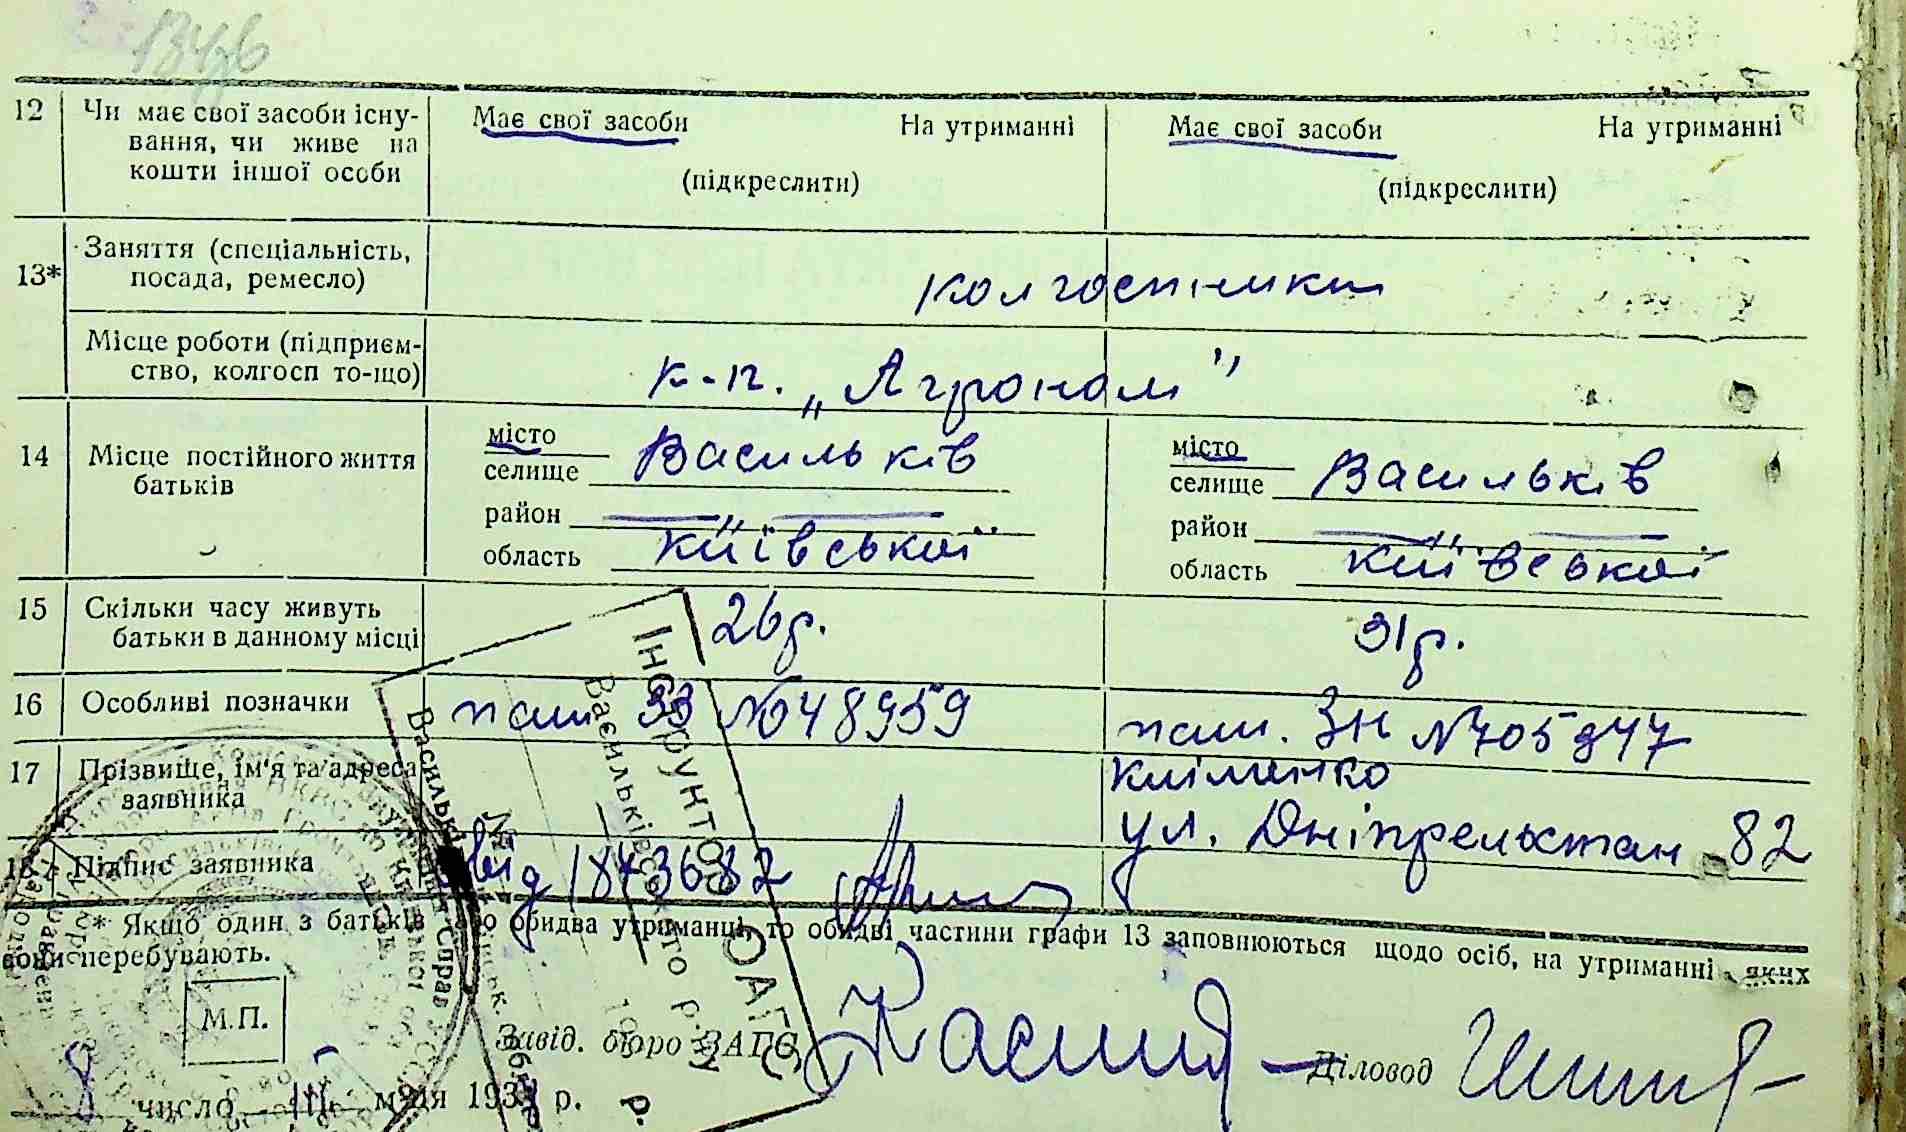 12 Чи має свої засоби існу-
вання, чи живе на
кошти іншої особи
Має свої засоби На утриманні
(підкреслити)
Має свої засоби На утриманні
(підкреслити)
13* Заняття (спеціальність,
посада, ремесло)
колгоспники
Місце роботи (підприєм-
ство, колгосп то-що)
к-п. „Агроном"
14 Місце постійного життя
батьків
місто
селище Васильків
район —"—
область Київської
місто
селище Васильків
район —"—
область Київської
15 Скільки часу живуть
батьки в данному місці
26 р.
31 р.
16 Особливі позначки
паш 33 № 048959
паш. ЗН № 705947
17 Прізвище, ім'я та адреса
заявника
Кліменко
ул. Дніпрельстан 82
18 Підпис заявника
від
* Якщо один з батьків або обидва утриманці, то обидві частини графи 13 заповнюються щодо осіб, на утриманні яких
вони перебувають.
М.П.
Завід. бюро ЗАГС
Діловод
8 число м-ця 193 р.
Інструктор ОАГС
Васильківського р.